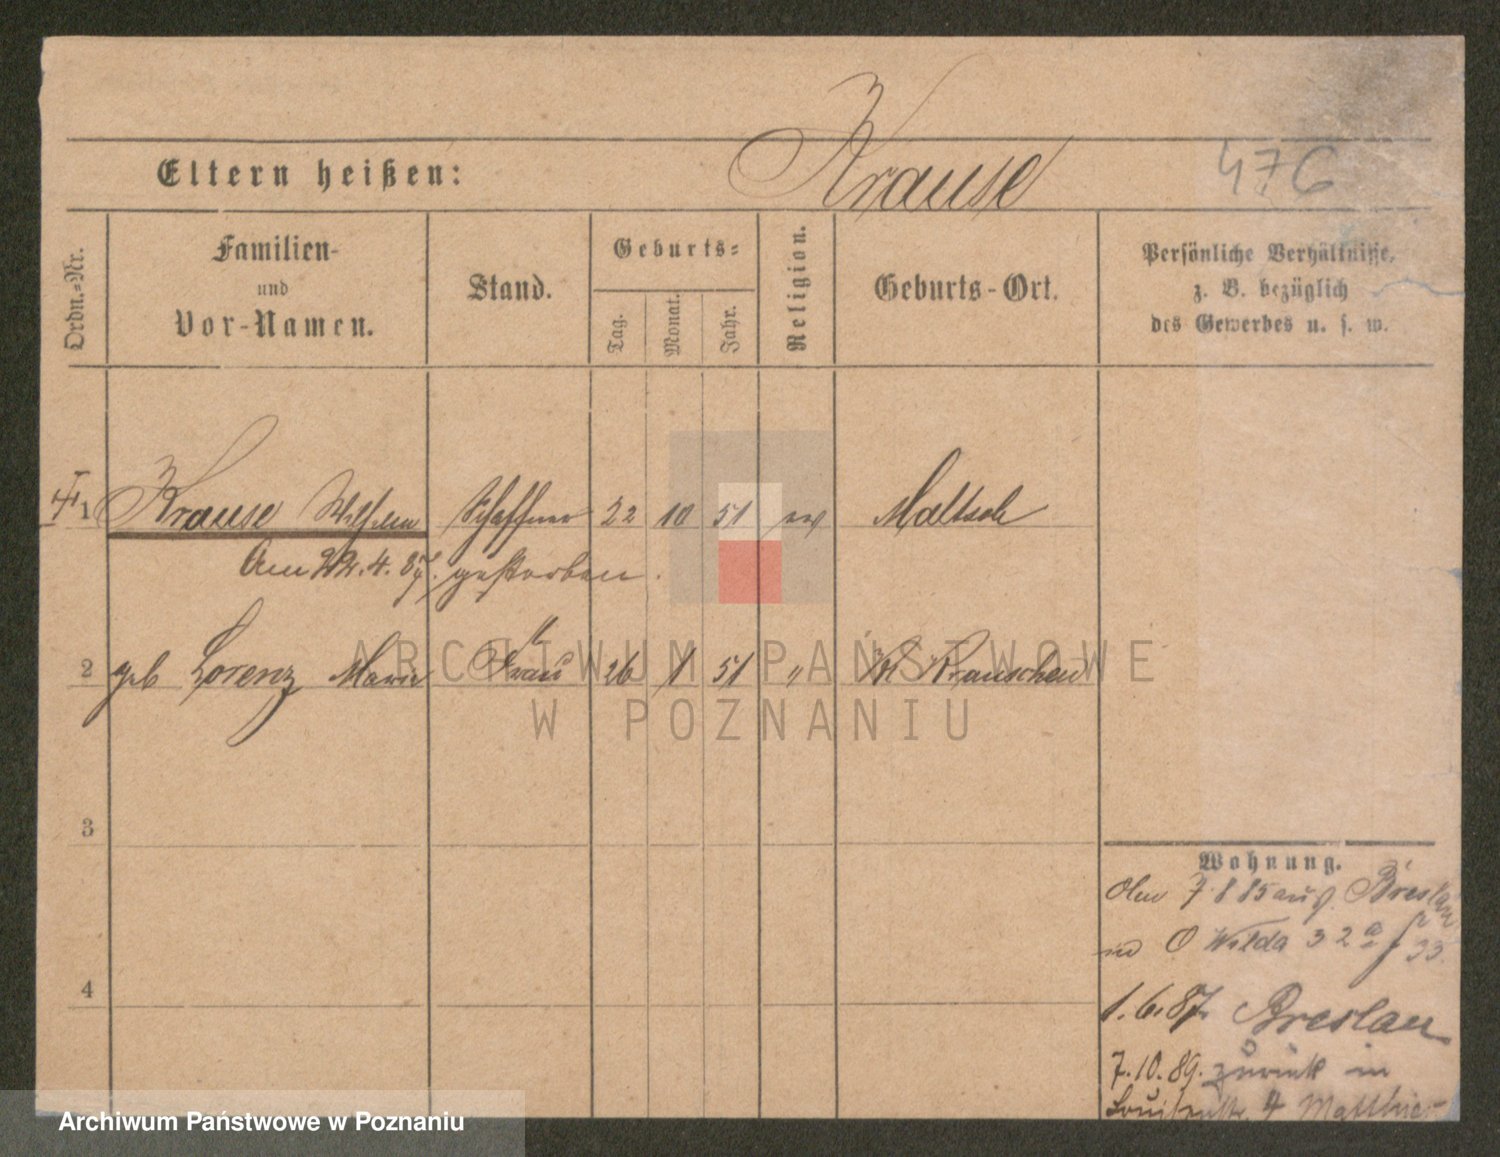 Krause
Eltern heißen: 476
Ordn.-Nr.
Familien-
und
Vor-Namen.
Stand.
Geburts-
Tag.
Monat.
Jahr.
Religion.
Geburts-Ort.
Persönliche Verhältnisse,
z. B. bezüglich
des Gewerbes u. s. w.
1 Krause Wilhelm Schaffner 22 10 51 ev Maltsch
Am 22. 4. 87. gestorben.
2 geb Lorenz Marie Frau 26 1 51 " Krauschen
3
4
Wohnung.
7.8 85 aus Breslau
in O Wilda 32a 33.
1.6.87 Breslau
7.10.89. zurück in
Louisenstr. 4 Matthies
ARCHIWUM PAŃSTWOWE
W POZNANIU
Archiwum Państwowe w Poznaniu